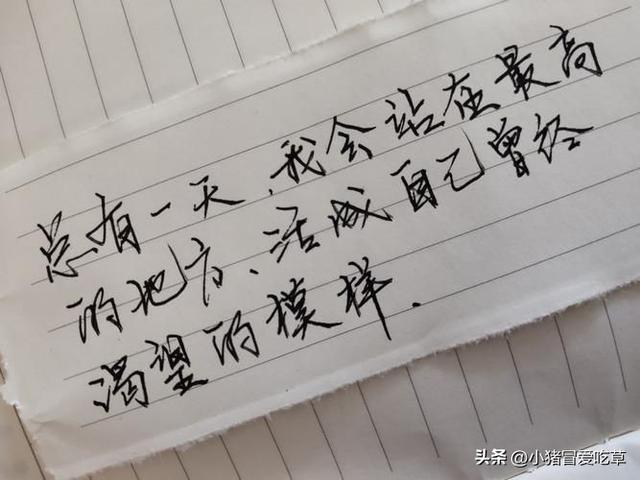 总有一天,我会站在最高
的地方、活成自己曾经
渴望的模样.
头条 @小猪冒爱吃草